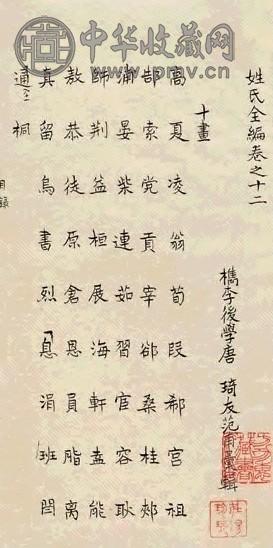 中华收藏网
www.pmv.cn
姓氏全編卷之十二
檇李後學唐 琦友范甫彙輯
十畫
高夏凌翁荀段郗宮祖
郜索党貢宰郤桑桂郟
浦晏柴連茹習宦容耿
師荆益桓展海軒盍能
敖恭徒原倉恩員脂离
真留烏書烈息涓班閆
通至桐